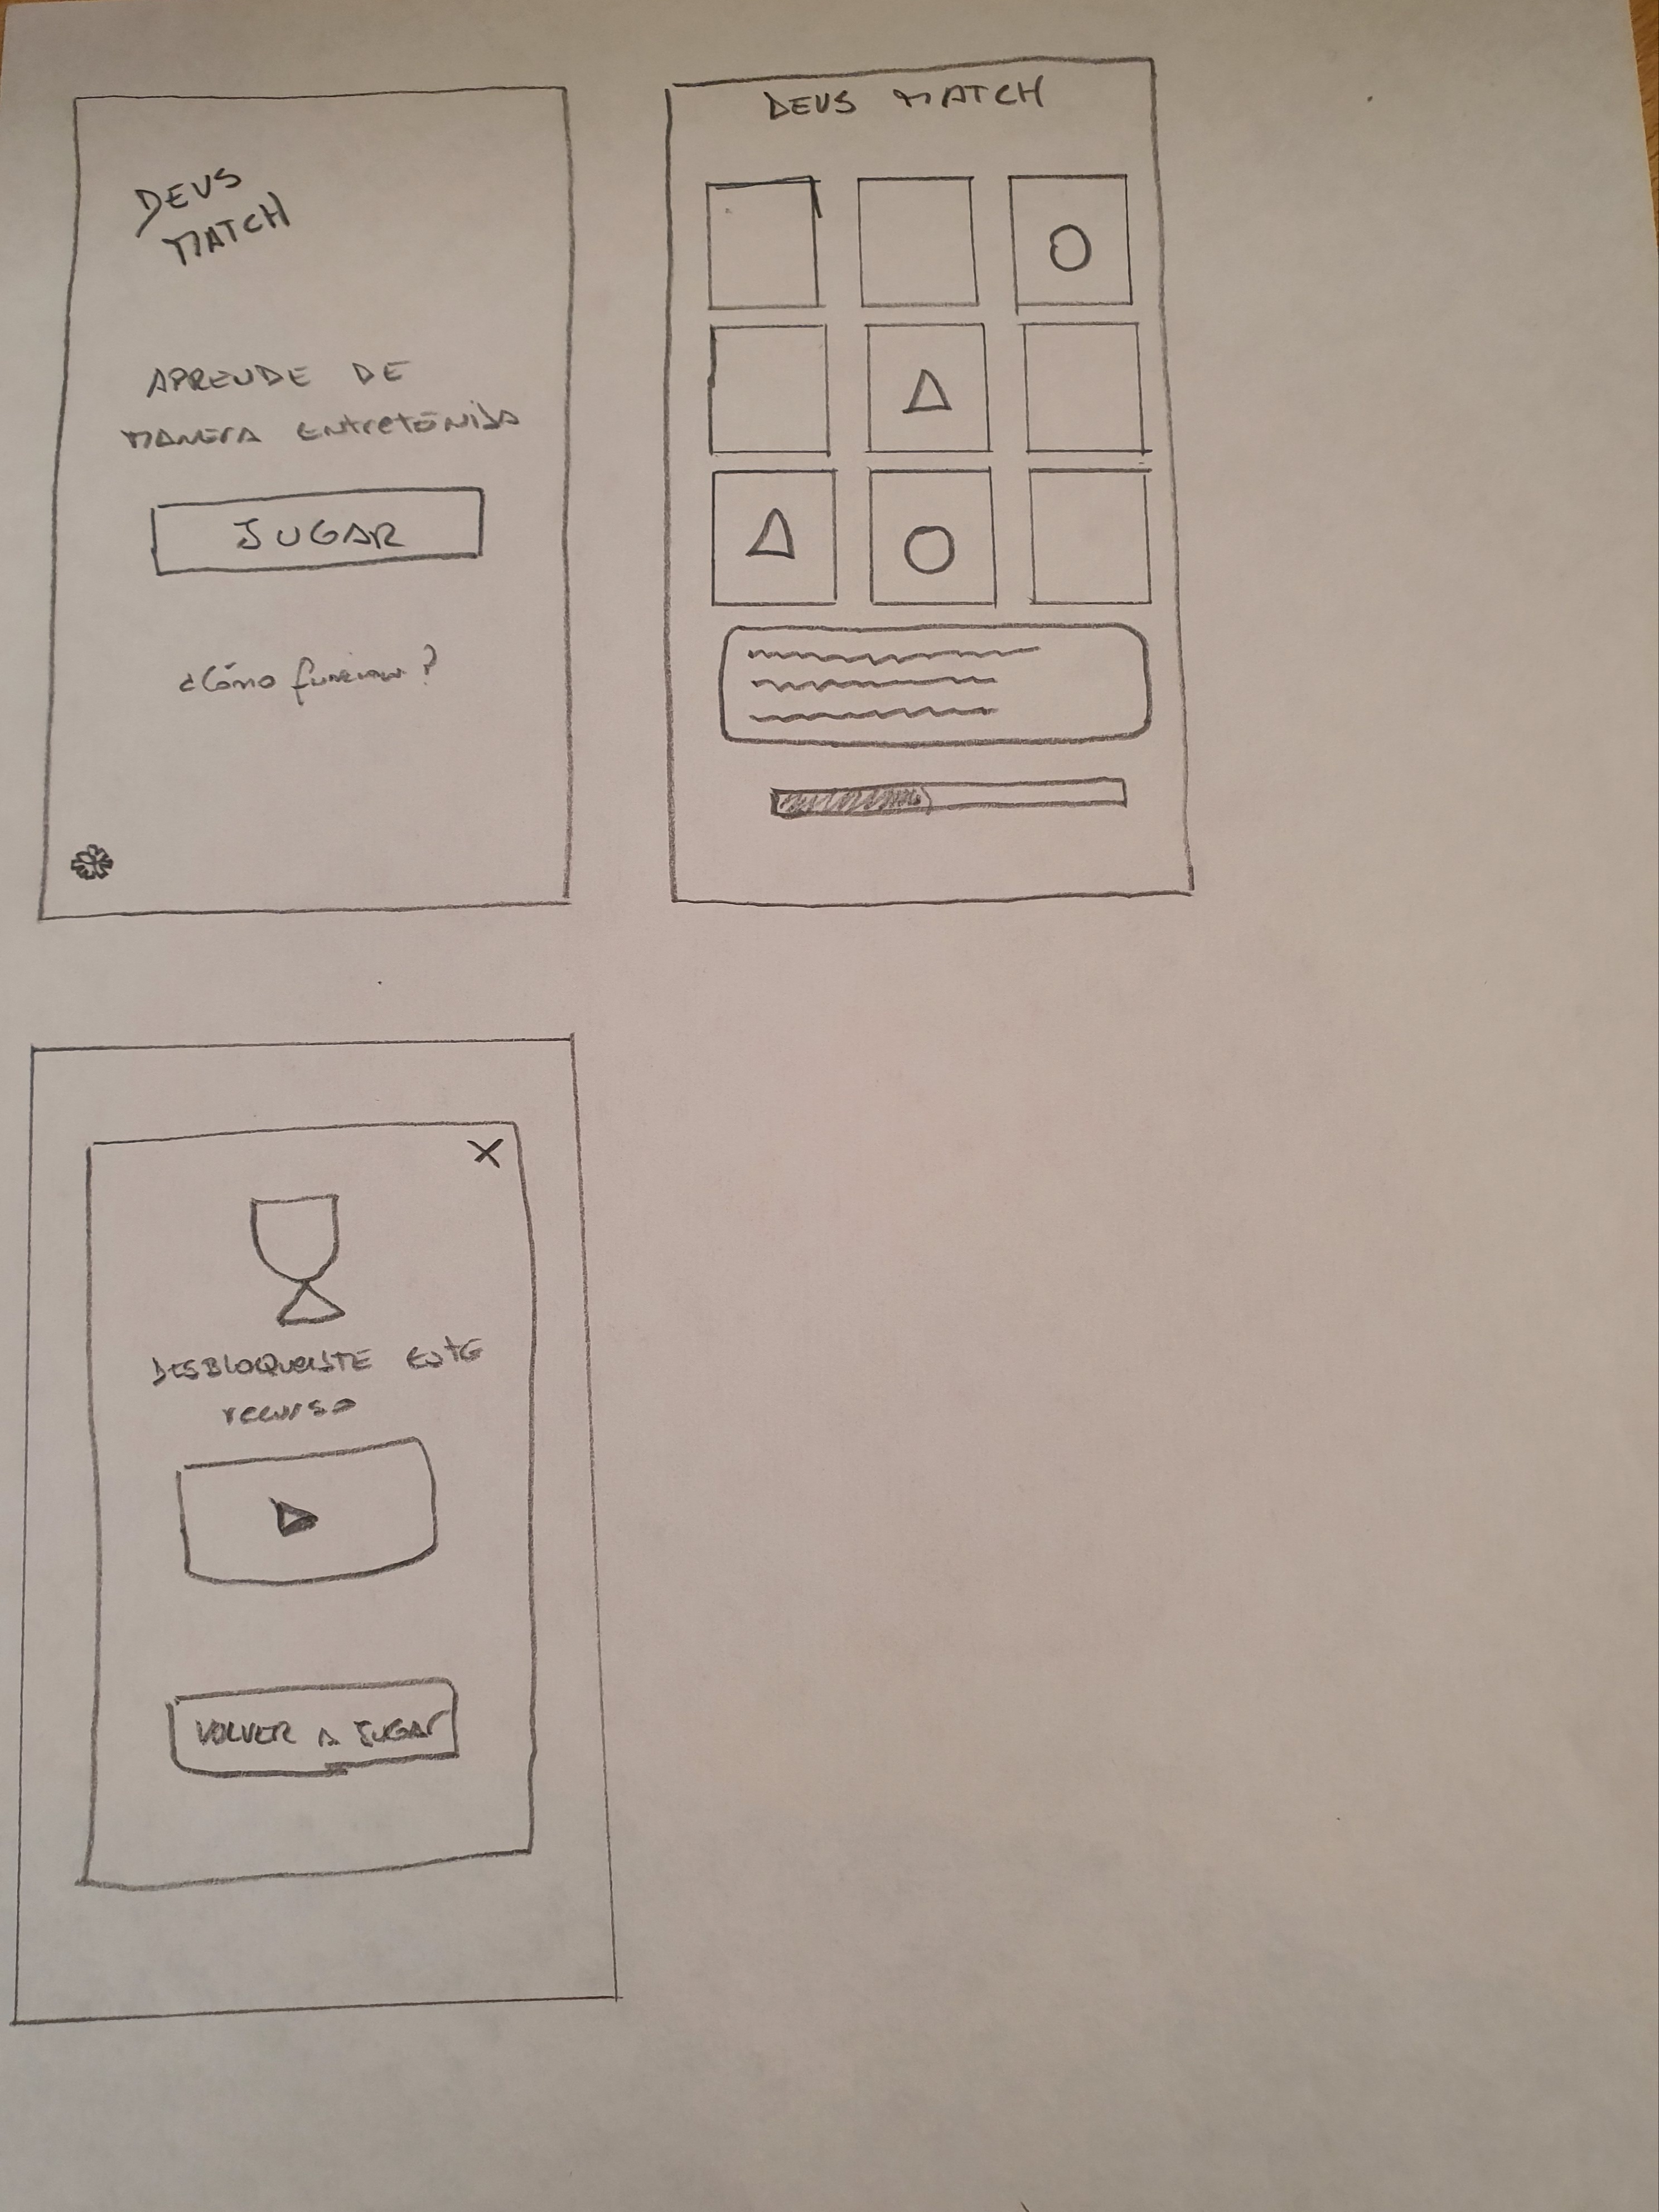 DEUS
MATCH
APRENDE DE
MANERA ENTRETENIDA
JUGAR
¿Cómo funciona?
DEUS MATCH
X
DESBLOQUEASTE ESTE
recurso
VOLVER A JUGAR